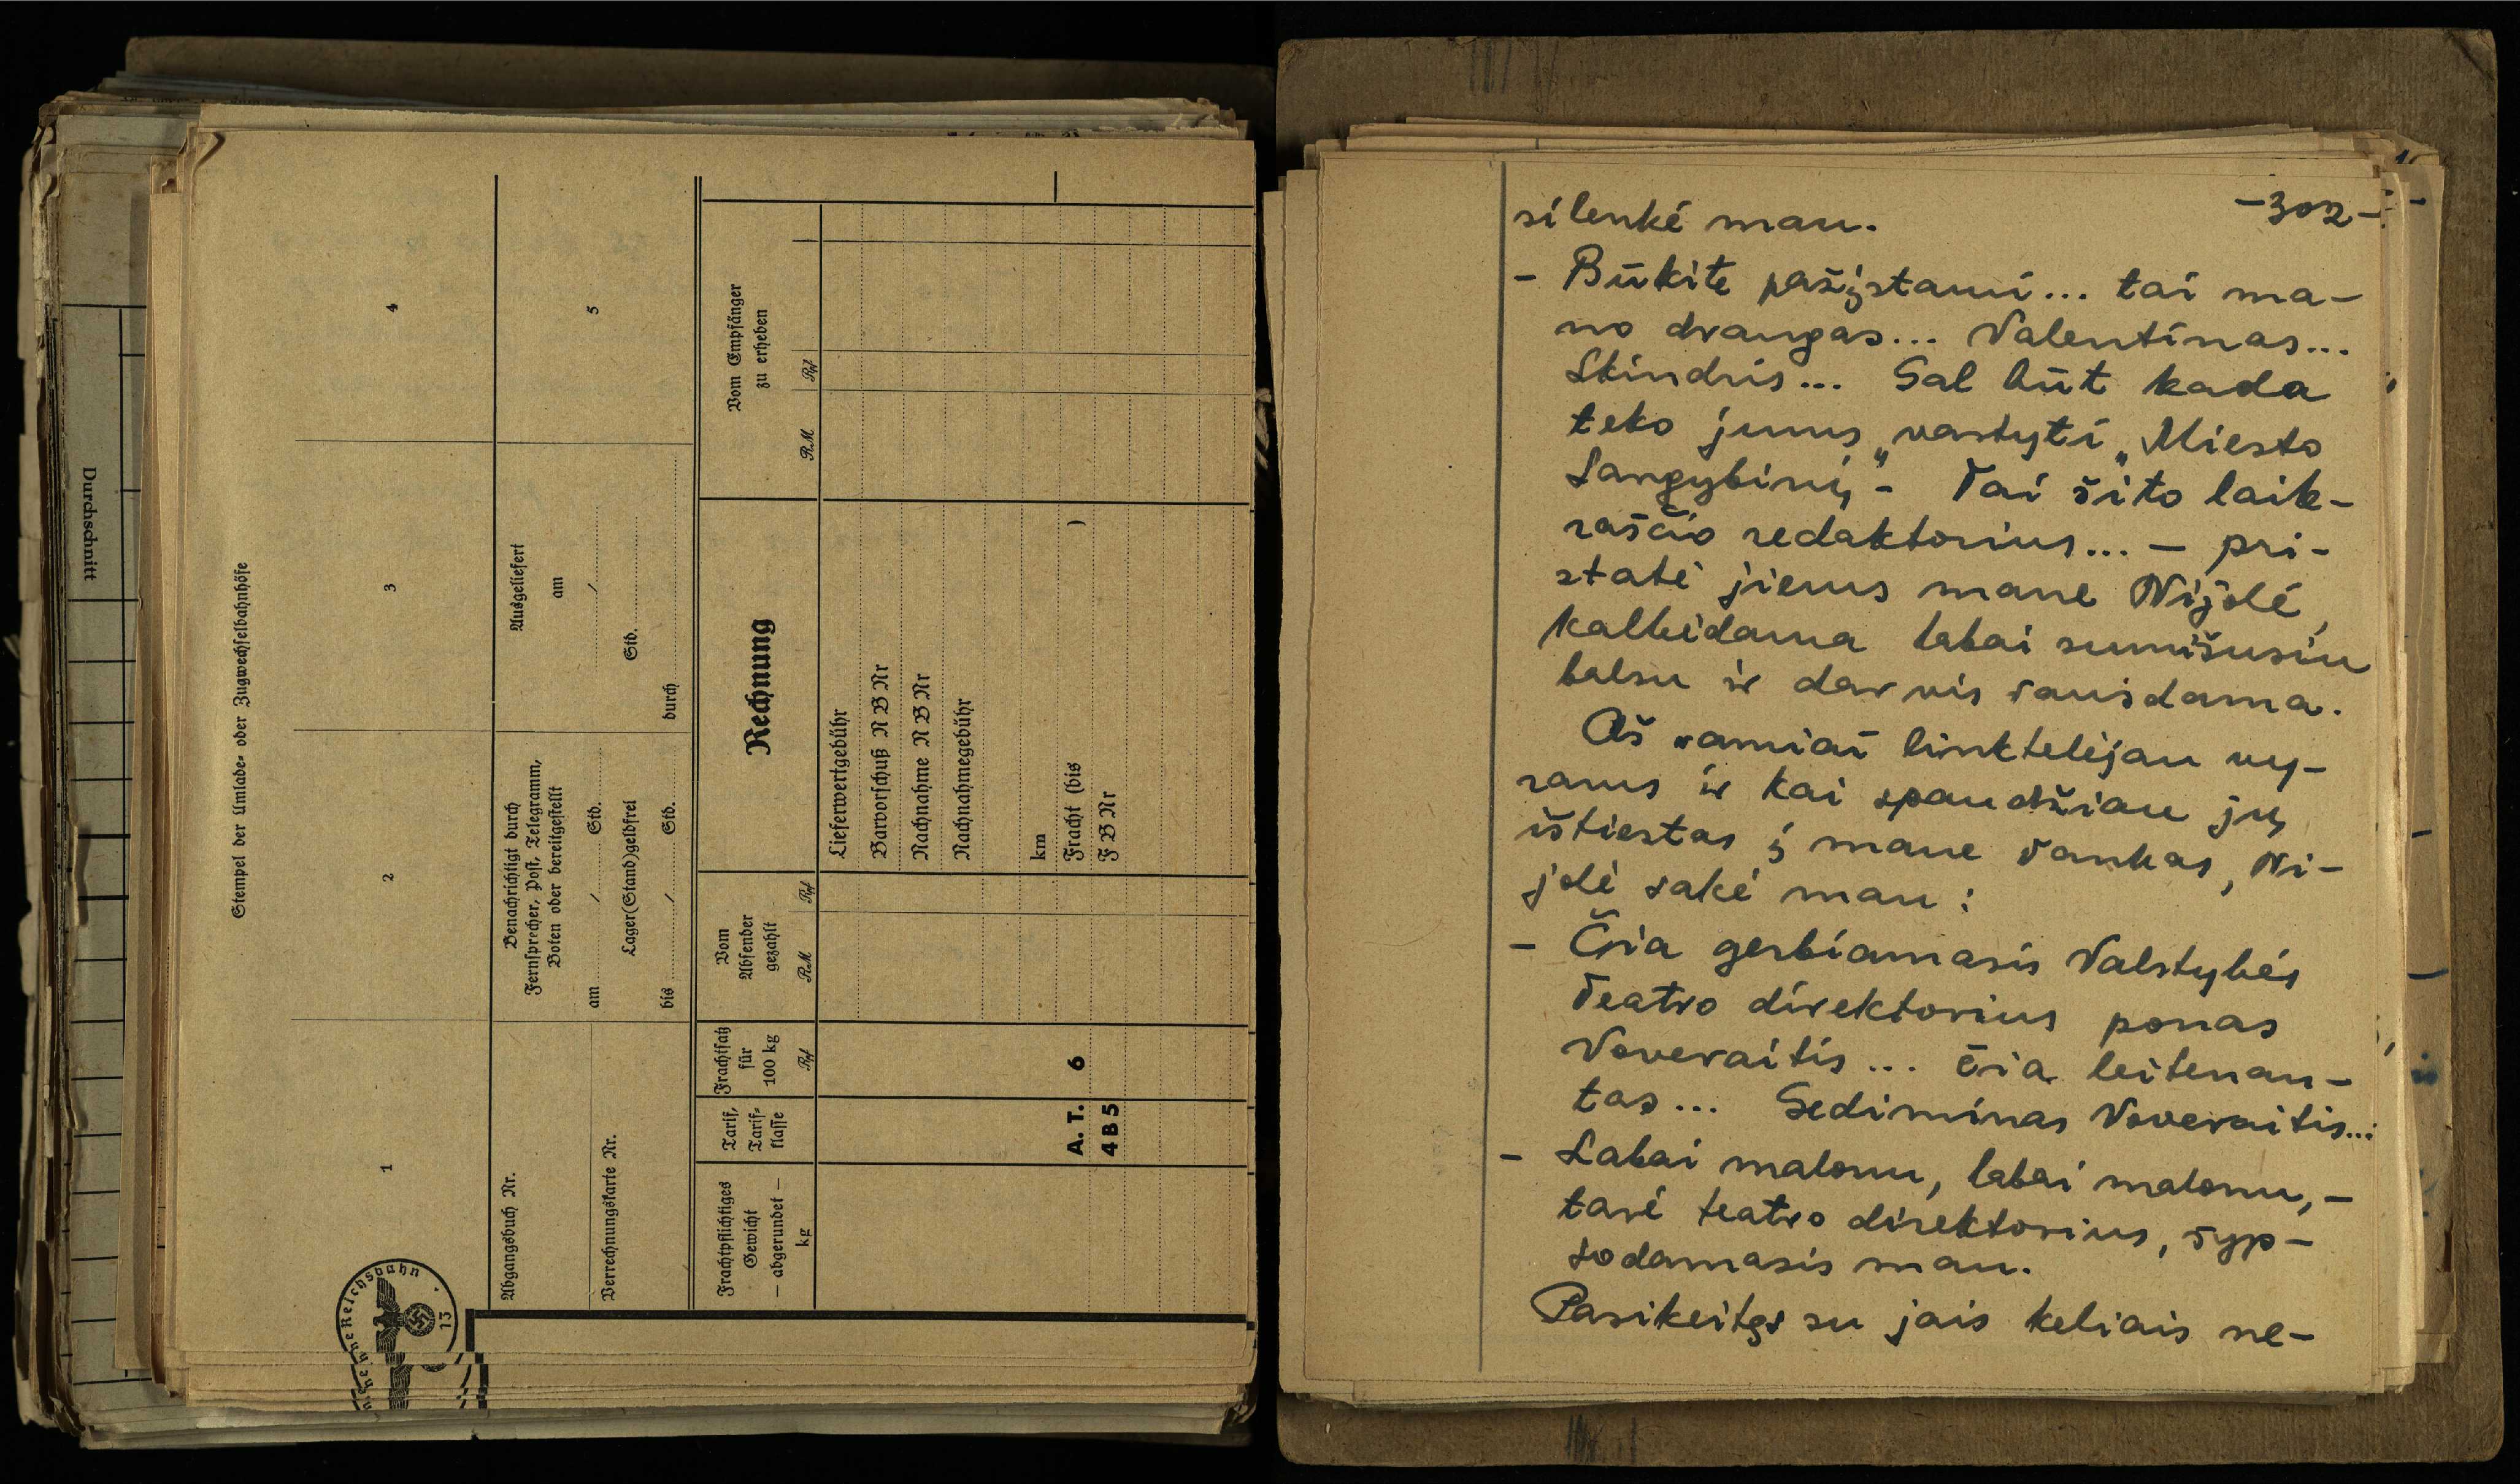 Durchschnitt
Stempel der Umlade- oder Zugwechselbahnhöfe
1
2
3
4
Abgangsbuch Nr.
Verrechnungskarte Nr.
Benachrichtigt durch
Fernsprecher, Post, Telegramm,
Boten oder bereitgestellt
am / Std.
Lager(Stand)geldfrei
bis / Std.
Ausgeliefert
am
/
Std.
durch
5
Frachtpflichtiges
Gewicht
— abgerundet —
kg
Tarif,
Tarif-
klasse
Frachtsatz
für
100 kg
Rpf
Vom
Absender
gezahlt
RM Rpf
Rechnung
Vom Empfänger
zu erheben
RM Rpf
Lieferwertgebühr
Barvorschuß N B Nr
Nachnahme N B Nr
Nachnahmegebühr
km
A. T. 6 Fracht (bis )
4 B 5 F B Nr
Reichsbahn
13
-302-
silenkė man.
- Būkite pažįstami... tai ma-
no draugas... Valentinas...
Skindris... Gal būt kada
teko jums „vartyti „Miesto
Sargybinį" - Tai šito laik-
raščio redaktorius... - pri-
statė jiems mane Nijolė,
kalbėdama labai sumišusiu
balsu ir dar vis rausdama.
Aš ramiai linktelėjau vy-
rams ir kai spaudžiau jų
ištiestas į mane rankas, Ni-
jolė sakė man:
- Čia gerbiamasis Valstybės
Teatro direktorius ponas
Voveraitis... čia leitenan-
tas... Gediminas Voveraitis...
- Labai malonu, labai malonu, -
tarė teatro direktorius, šyp-
sodamasis man.
Pasikeitęs su jais keliais ne-